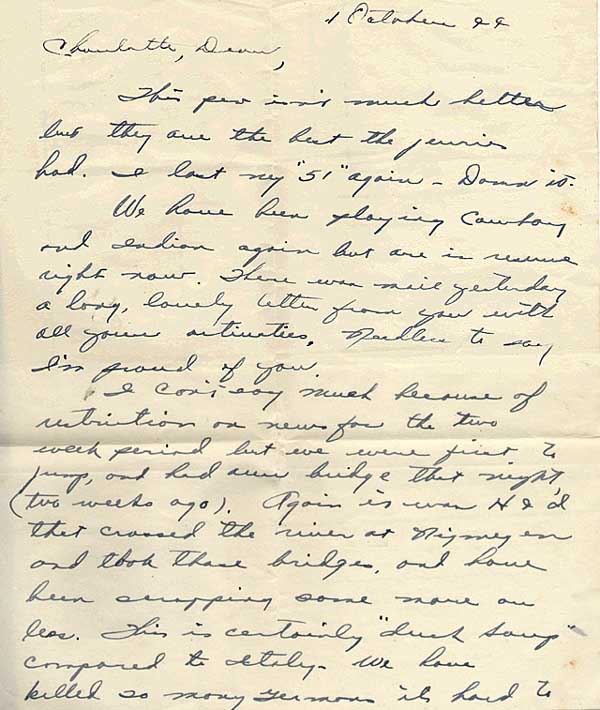 1 October 44
Charlotte, Dear,
This pen isn't much better
but they are the best the jerries
had. I lost my "51" again - Damn it.
We have been playing Cowboy
and Indian again but are in reserve
right now. There was mail yesterday
a long, lovely letter from you with
all your activities. Needless to say
I'm proud of you.
I can't say much because of
restriction on news for the two
week period but we were first to
jump, and had our bridge that night
(two weeks ago). Again it was H & I'd
that crossed the river at Nigmegen
and took those bridges, and have
been scrapping some more or
less. This is certainly "duck soup"
compared to Italy - We have
killed so many germans it's hard to